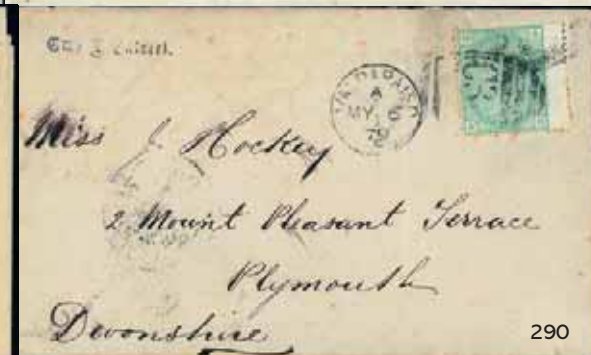 VALPARAISO
A
MY 6
79
C30
Miss J. Hockey
2 Mount Pleasant Terrace
Plymouth
Devonshire
290